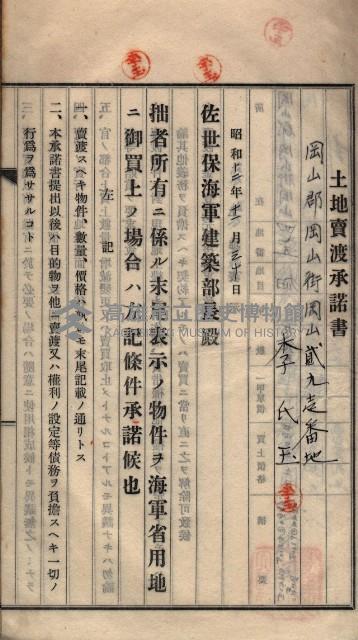 土地賣渡承諾書
岡山郡岡山街岡山貳九壱番地
李氏玉
昭和十二年十二月三十日
佐世保海軍建築部長殿
拙者所有ニ係ル末尾表示ノ物件ヲ海軍省用地
ニ御買上ノ場合ハ左記條件承諾候也
左記
一、賣渡スヘキ物件、數量、價格ハスヘテ末尾記載ノ通リトス
二、本承諾書提出以後ハ目的物ヲ他ニ賣渡又ハ權利ノ設定等債務ヲ負擔スヘキ一切ノ
行爲ヲ爲ササルコト
高雄市立歷史博物館
KAOHSIUNG MUSEUM OF HISTORY